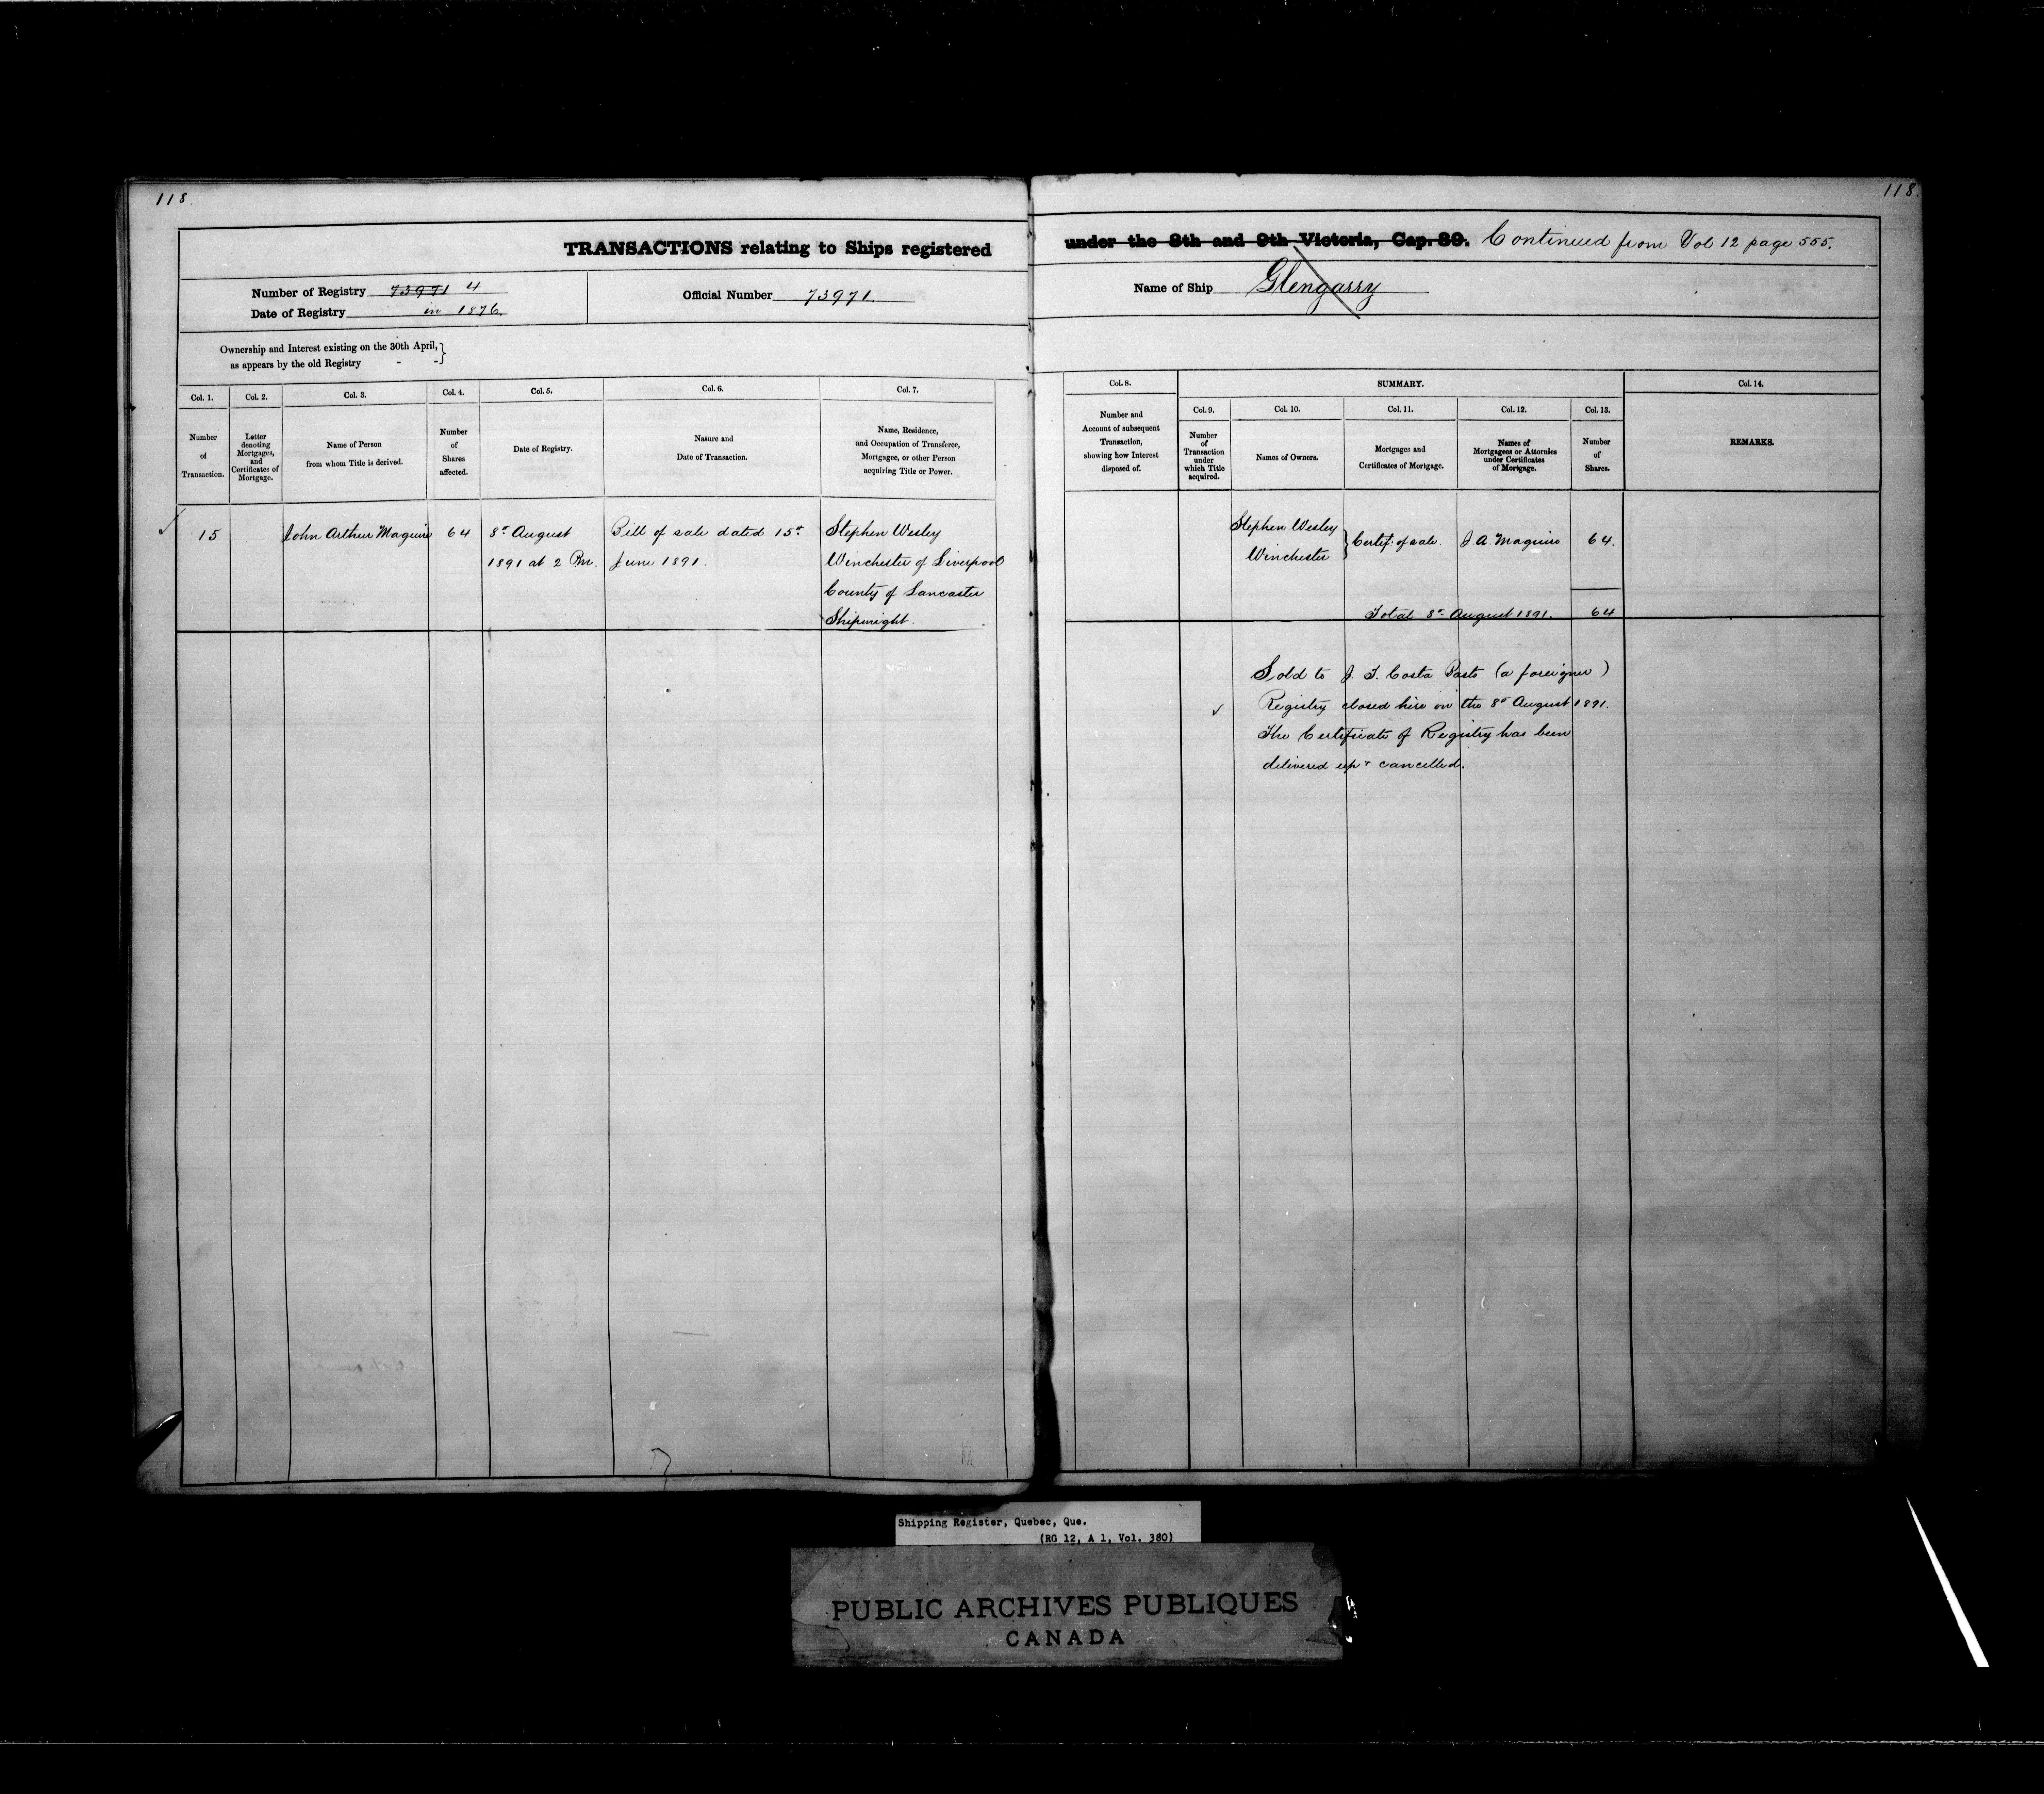 118.
118.
TRANSACTIONS relating to Ships registered under the 8th and 9th Victoria, Cap. 89. Continued from Vol 12 page 555.
Number of Registry 73971 4
Date of Registry in 1876.
Official Number 73971.
Name of Ship Glengarry
Ownership and Interest existing on the 30th April,
as appears by the old Registry - - }
Col. 1.
Number
of
Transaction.
Col. 2.
Letter
denoting
Mortgages,
and
Certificates of
Mortgage.
Col. 3.
Name of Person
from whom Title is derived.
Col. 4.
Number
of
Shares
affected.
Col. 5.
Date of Registry.
Col. 6.
Nature and
Date of Transaction.
Col. 7.
Name, Residence,
and Occupation of Transferee,
Mortgagee, or other Person
acquiring Title or Power.
Col. 8.
Number and
Account of subsequent
Transaction,
showing how Interest
disposed of.
SUMMARY.
Col. 9.
Number
of
Transaction
under
which Title
acquired.
Col. 10.
Names of Owners.
Col. 11.
Mortgages and
Certificates of Mortgage.
Col. 12.
Names of
Mortgagees or Attornies
under Certificates
of Mortgage.
Col. 13.
Number
of
Shares.
Col. 14.
REMARKS.
15
John Arthur Maguire
64
8th August
1891 at 2 Pm.
Bill of sale dated 15th
June 1891.
Stephen Wesley
Winchester of Liverpool
County of Lancaster
Shipwright.
Stephen Wesley
Winchester }
Certif: of sale.
J. A. Maguire
64.
Total 8th August 1891. 64
Sold to J. T. Costa Basto (a foreigner)
Registry closed here on the 8th August 1891.
The Certificate of Registry has been
delivered up & cancelled.
Shipping Register, Quebec, Que.
(RG 12, A 1, Vol. 380)
PUBLIC ARCHIVES PUBLIQUES
CANADA